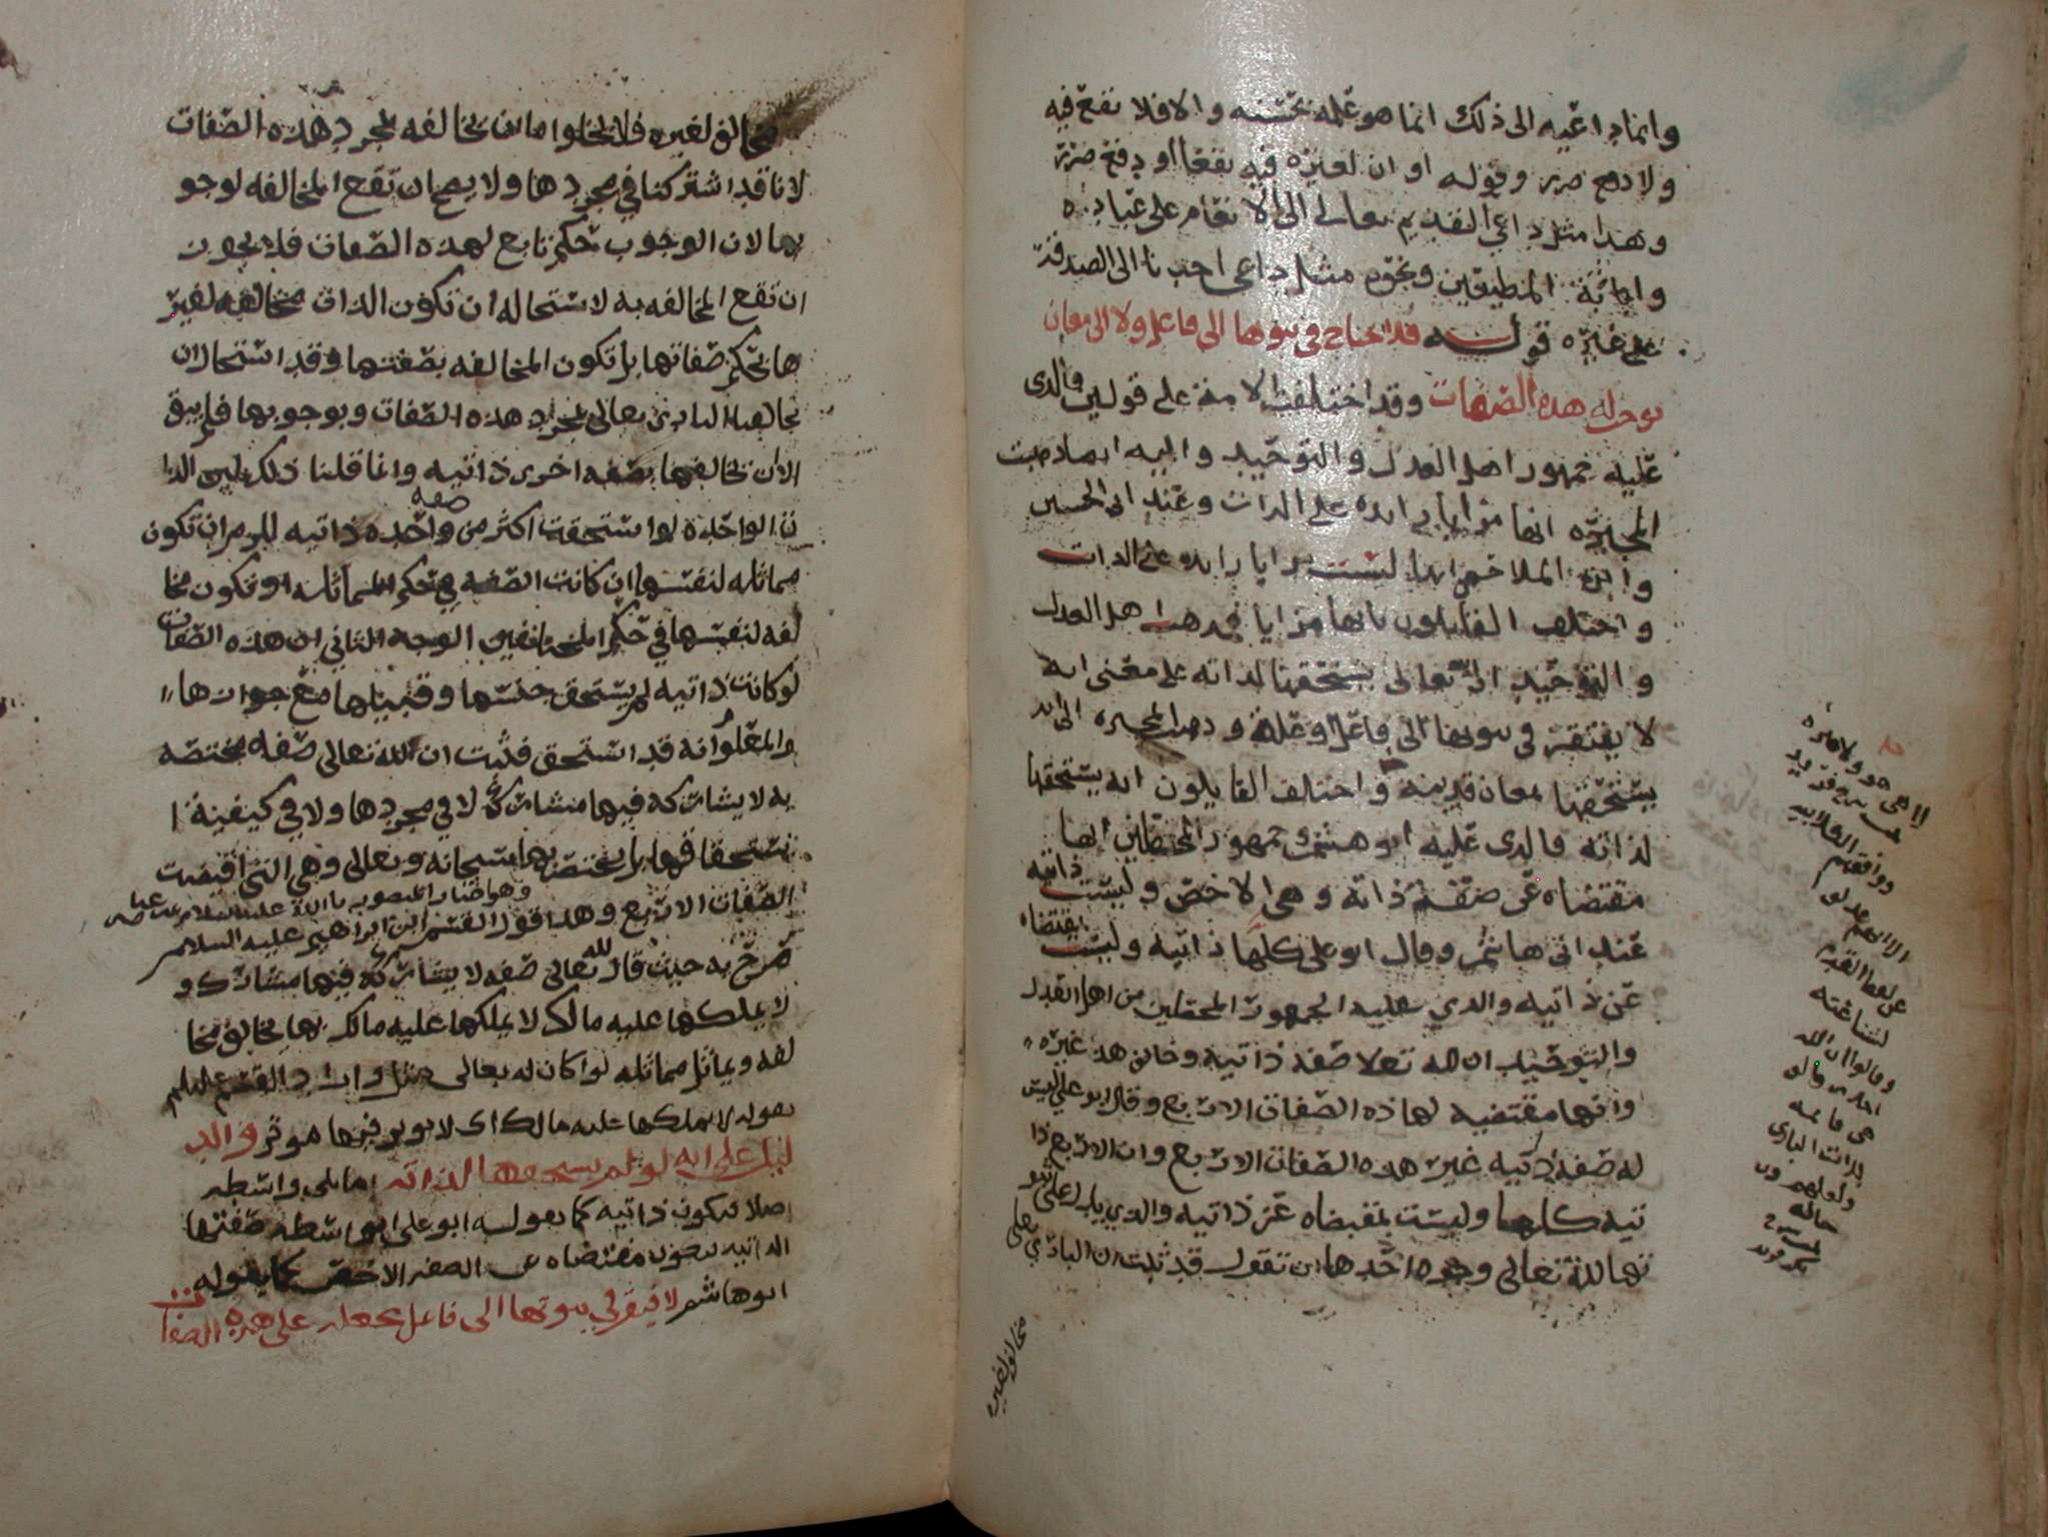 وانما داعيه الى ذلك انما هو علمه بحسنه والا فلا نفع فيه
ولا دفع ضرر وقوله او ان لغيره فيه نفعا او دفع ضرر
وهذا مثل داعي القديم تعالى الى الانعام على عباده
واثابة المطيعين ونحوه مثل داعى احدنا الى الصدقة
على غيره قوله فلا يحتاج في ثبوتها الى فاعل ولا الى معان
توجب له هذه الصفات وقد اختلفت الامة على قولين فالذى
عليه جمهور اهل العدل والتوحيد واليه ايضا ذهبت
المجبره انها مزايا زايده على الذات وعند ابى الحسين
وابن الملاحمي انها ليست مزايا زايده على الذات
واختلف القايلون بانها مزايا فمذهب اهل العدل
والتوحيد انه تعالى يستحقها لذاته على معنى انه
لا يفتقر في ثبوتها الى فاعل او علة وذهب المجبره الى انه
يستحقها لمعان قديمة واختلف القايلون انه يستحقها
لذاته فالذى عليه ابو هاشم وجمهور المحققين انها
مقتضاه عن صفة ذاته وهى الاخص وليست ذاتيه
عند ابى هاشم وقال ابو على كلها ذاتيه وليست بمقتضاه
عن ذاتيه والذي عليه الجمهور المحققين من اهل العدل
والتوحيد ان لله تعلا صفه ذاتيه وخالف هذا غيره
وانها مقتضيه لهاذه الصفات الاربع وقال ابو علي ليس
له صفه ذاتيه غير هذه الصفات الاربع وان الاربع ذا
تيه كلها وليست بمقتضاه عن ذاتيه والذي يدل على ثبو
تها لله تعالى وجوه احدها ان تقول قد ثبت ان البارى تعلى
مخالف لغير
لا هى هو ولا غيره
ووافقهم الكلابيه
الا انهم عدلوا
عن لفظ القدم
لشناعته
وقالوا ان الله
هى قائمه
بذات البارى
مخالف لغيره فلا يخلوا ما ان يخالفه بمجرد هذه الصفات
لانا قد اشتركنا في مجردها ولا يصح ان تقع المخالفه لوجو
بها لان الوجوب حكم تابع لهذه الصفات فلا يجوز
ان تقع المخالفه به لاستحالة ان تكون الذات مخالفه لغير
ها بحكم صفاتها بل تكون المخالفه بصفتها وقد استحال ان
يخالفنا البارى تعالى بمجرد هذه الصفات وبوجوبها فلم يبق
الا ان يخالفها بصفه اخرى ذاتيه وانما قلنا ذلك لان الذا
ت الواحده لو استحقت اكثر من صفه واحده ذاتيه للزم ان تكون
مماثله لنفسها ان كانت الصفه في حكم المماثله او تكون مخا
لفه لنفسها في حكم المختلفين الوجه الثاني ان هذه الصفات
لو كانت ذاتيه لم يستحق جنسها وقبيلها مع جوازها
والمعلوم انه قد استحق فثبت ان لله تعالى صفه مختصه
به لا يشاركه فيها مشارك لا في مجردها ولا في كيفية ا
ستحقاقها بل يختص بها سبحانه وتعالى وهي التي اقتضت
الصفات الاربع وهذا قول القسم ابن ابراهيم عليه السلام
وهو اختيار المنصور بالله عليه السلام
صرح به حيث قال لله تعالى صفه لا يشاركه فيها مشارك و
لا يملكها عليه مالك لا يملكها عليه مالك بها يخالف مخا
لفه ويماثل مماثله لو كان له تعالى مثل واراد القسم عليلم
بقوله لا يملكها عليه مالك اى لا يوثر فيها موثر والد
ليل على انه لو لم يستحقها لذاته اما بلى واسطه
اصلا فيكون ذاتيه كما يقوله ابو على او بواسطه صفتها
الذاتيه فتكون مقتضاه عن الصفه الاخص كما يقوله
ابو هاشم لافتقر في ثبوتها الى فاعل يجعله على هذه الصفات